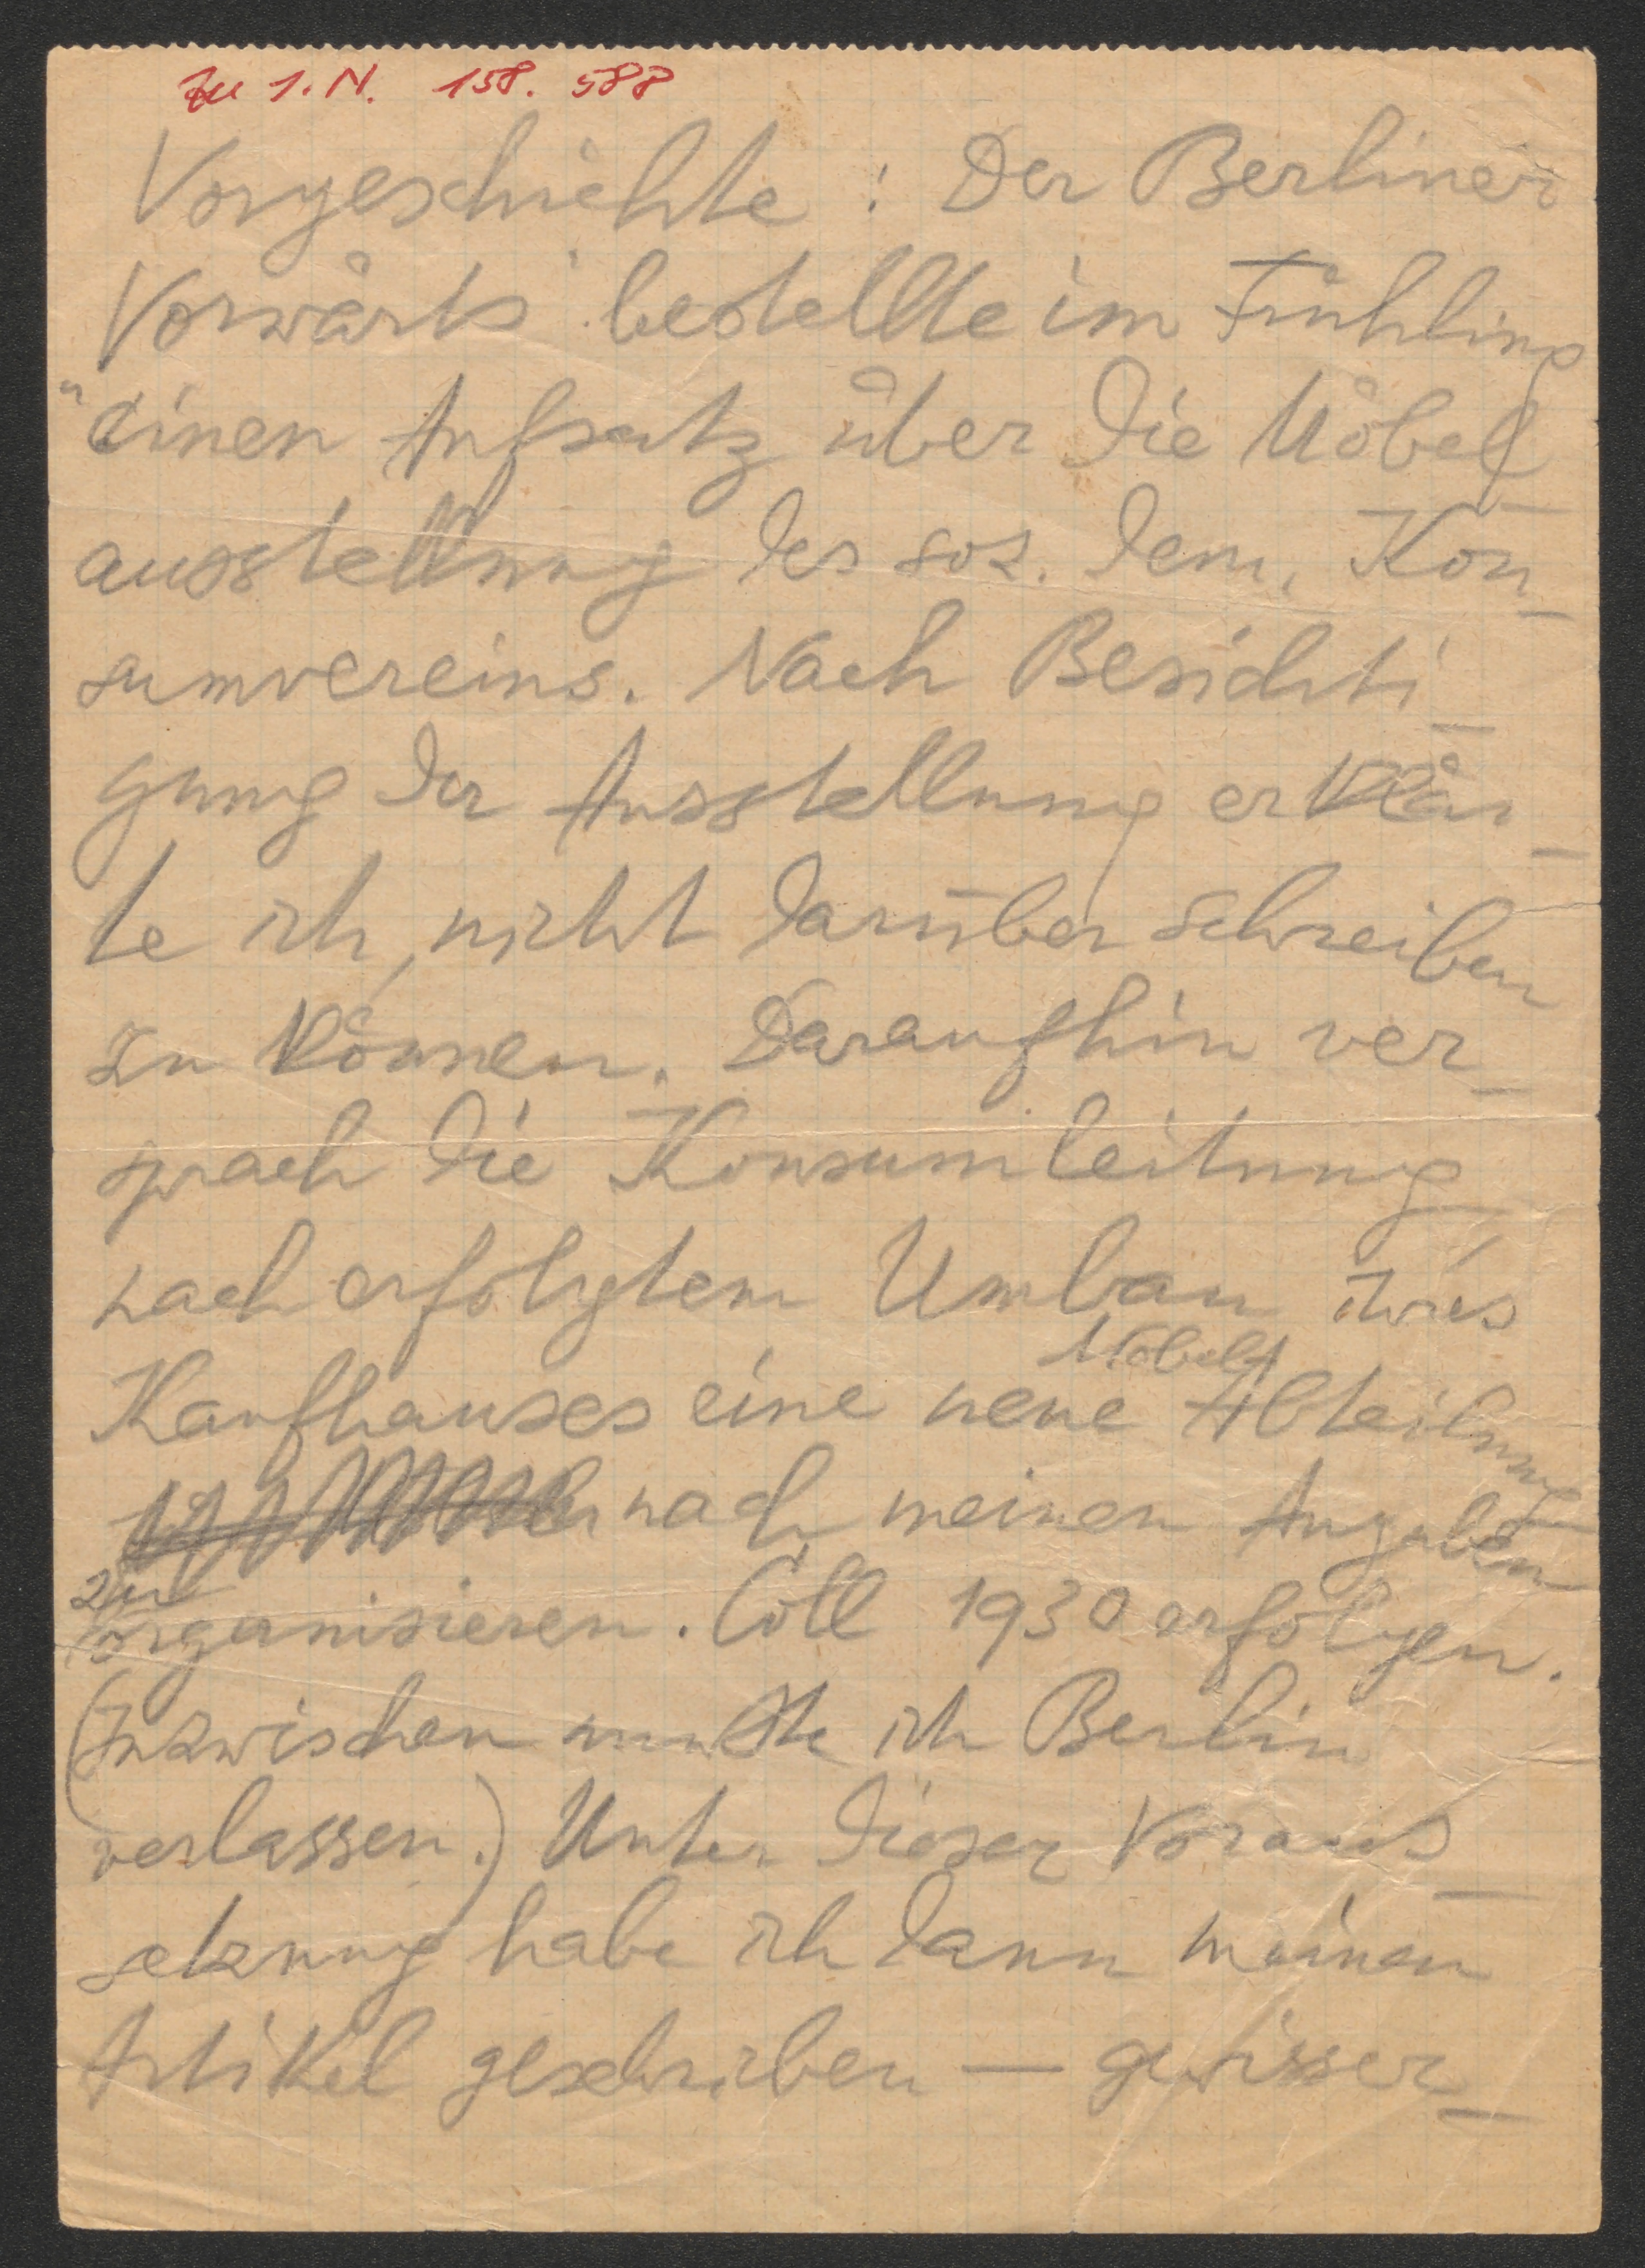 Zu I.N. 158.588
Vorgeschichte : Der Berliner
Vorwärts" bestellte im Frühling
"einen Aufsatz über die Möbel-
ausstellung des soz. dem. Kon-
sumvereins. Nach Besichti-
gung der Ausstellung erklär-
te ich, nicht darüber schreiben
zu können. Daraufhin ver-
sprach die Konsumleitung
nach erfolgtem Umbau ihres
Möbel-
Kaufhauses eine neue Abteilung
nach meinen Angaben
zu
organisieren. Soll 1930 erfolgen.
(Inzwischen mußte ich Berlin
verlassen.) Unter dieser Voraus-
setzung habe ich dann meinen
Artikel geschrieben — gewisser-